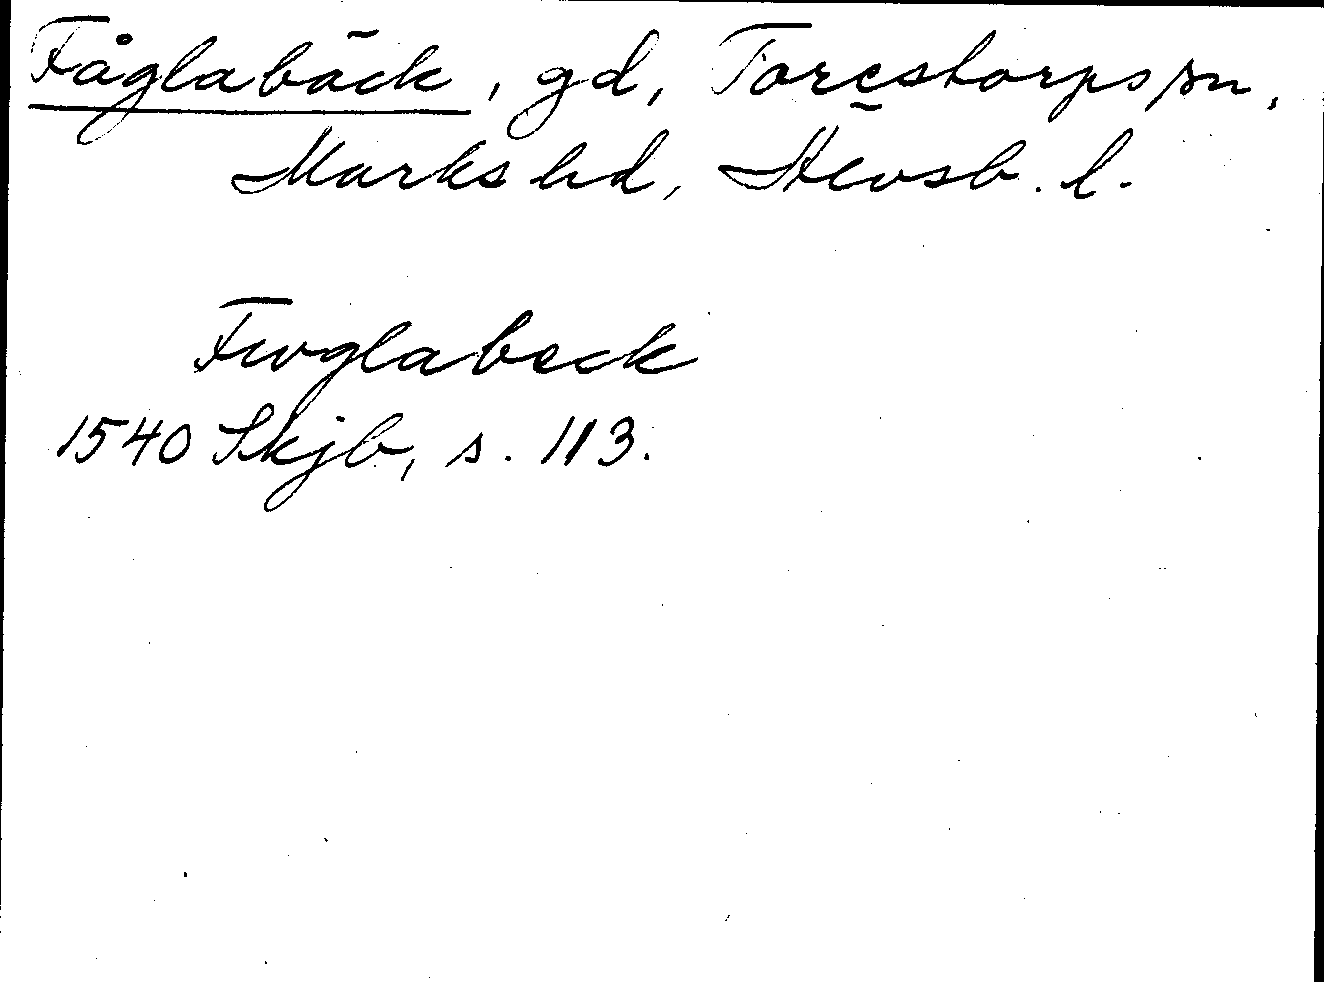 Fåglabäck, gd, Torestorps sn,
Marks hd, Älvsb. l.
Fwglabeck
1540 Skjb, s. 113.